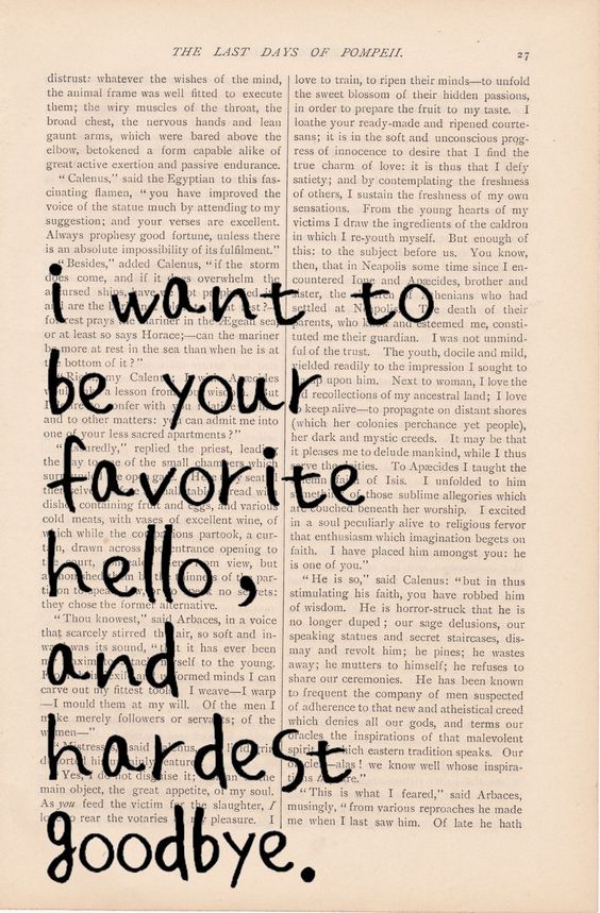 THE LAST DAYS OF POMPEII.
27
i want to
be your
favorite
hello,
and
hardest
goodbye.
distrust: whatever the wishes of the mind,
the animal frame was well fitted to execute
them; the wiry muscles of the throat, the
broad chest, the nervous hands and lean
gaunt arms, which were bared above the
elbow, betokened a form capable alike of
great active exertion and passive endurance.
“Calenus,” said the Egyptian to this fas-
cinating flamen, “you have improved the
voice of the statue much by attending to my
suggestion; and your verses are excellent.
Always prophesy good fortune, unless there
is an absolute impossibility of its fulfilment.”
“Besides,” added Calenus, “if the storm
does come, and if it does overwhelm the
ships have
and are the
prays the mariner in the Ægean sea,
or at least so says Horace;—can the mariner
be more at rest in the sea than when he is at
the bottom of it?”
my
a lesson from
confer with you
and to other matters: you can admit me into
one of your less sacred apartments?”
replied the priest, leading
the way to one of the small chambers which
containing fruit and eggs, and various
cold meats, with vases of excellent wine, of
which while the companions partook, a cur-
tain, drawn across the entrance opening to
the court, from view, but
they chose the former alternative.
“Thou knowest,” said Arbaces, in a voice
that scarcely stirred the air, so soft and in-
ward was its sound, “that it has ever been
my maxim to the young.
minds I can
carve out my fittest tools. I weave—I warp
—I mould them at my will. Of the men I
make merely followers or servants; of the
women—”
said
features
Yes, I do not disguise it;
main object, the great appetite, of my soul.
As you feed the victim for the slaughter, I
love to rear the votaries of my pleasure. I
love to train, to ripen their minds—to unfold
the sweet blossom of their hidden passions,
in order to prepare the fruit to my taste. I
loathe your ready-made and ripened courte-
sans; it is in the soft and unconscious prog-
ress of innocence to desire that I find the
true charm of love: it is thus that I defy
satiety; and by contemplating the freshness
of others, I sustain the freshness of my own
sensations. From the young hearts of my
victims I draw the ingredients of the caldron
in which I re-youth myself. But enough of
this: to the subject before us. You know,
then, that in Neapolis some time since I en-
countered Ione and Apæcides, brother and
sister, the children of Athenians who had
settled at Neapolis. The death of their
parents, who knew and esteemed me, consti-
tuted me their guardian. I was not unmind-
ful of the trust. The youth, docile and mild,
yielded readily to the impression I sought to
upon him. Next to woman, I love the
old recollections of my ancestral land; I love
to keep alive—to propagate on distant shores
(which her colonies perchance yet people),
her dark and mystic creeds. It may be that
it pleases me to delude mankind, while I thus
serve the deities. To Apæcides I taught the
of Isis. I unfolded to him
something of those sublime allegories which
are couched beneath her worship. I excited
in a soul peculiarly alive to religious fervor
that enthusiasm which imagination begets on
faith. I have placed him amongst you: he
is one of you.”
“He is so,” said Calenus: “but in thus
stimulating his faith, you have robbed him
of wisdom. He is horror-struck that he is
no longer duped; our sage delusions, our
speaking statues and secret staircases, dis-
may and revolt him; he pines; he wastes
away; he mutters to himself; he refuses to
share our ceremonies. He has been known
to frequent the company of men suspected
of adherence to that new and atheistical creed
which denies all our gods, and terms our
oracles the inspirations of that malevolent
spirit of which eastern tradition speaks. Our
oracles—alas! we know well whose inspira-
tions they are.”
“This is what I feared,” said Arbaces,
musingly, “from various reproaches he made
me when I last saw him. Of late he hath